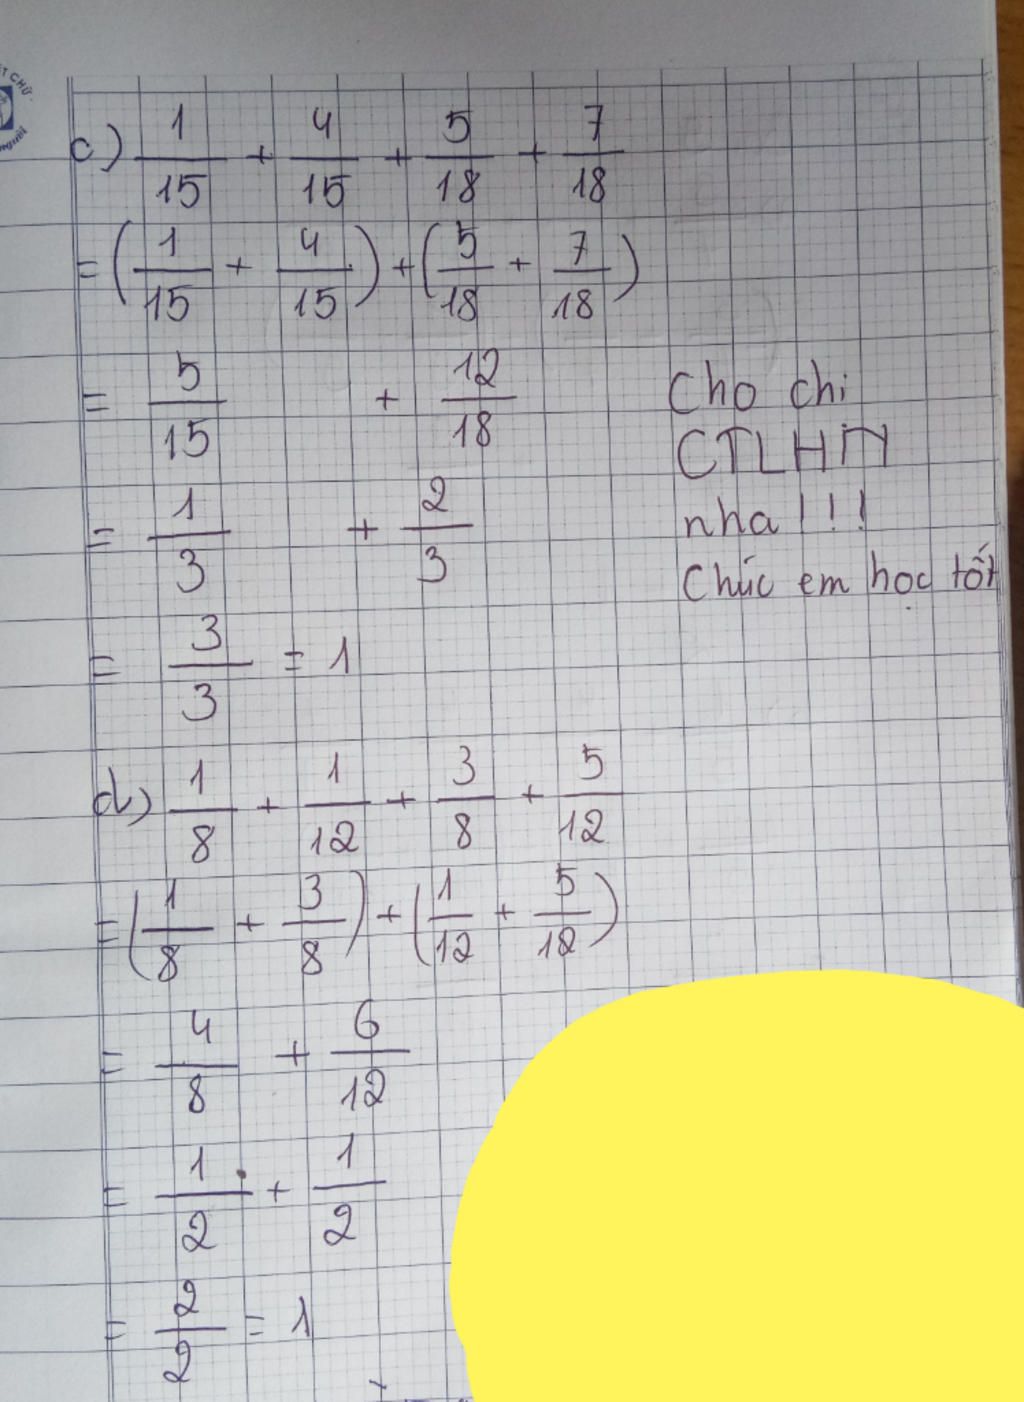 c) 1/15 + 4/15 + 5/18 + 7/18
= (1/15 + 4/15) + (5/18 + 7/18)
= 5/15 + 12/18
= 1/3 + 2/3
= 3/3 = 1
Cho chi
CTLHN
nha!!!
Chúc em học tốt
d) 1/8 + 1/12 + 3/8 + 5/12
= (1/8 + 3/8) + (1/12 + 5/12)
= 4/8 + 6/12
= 1/2 + 1/2
= 2/2 = 1